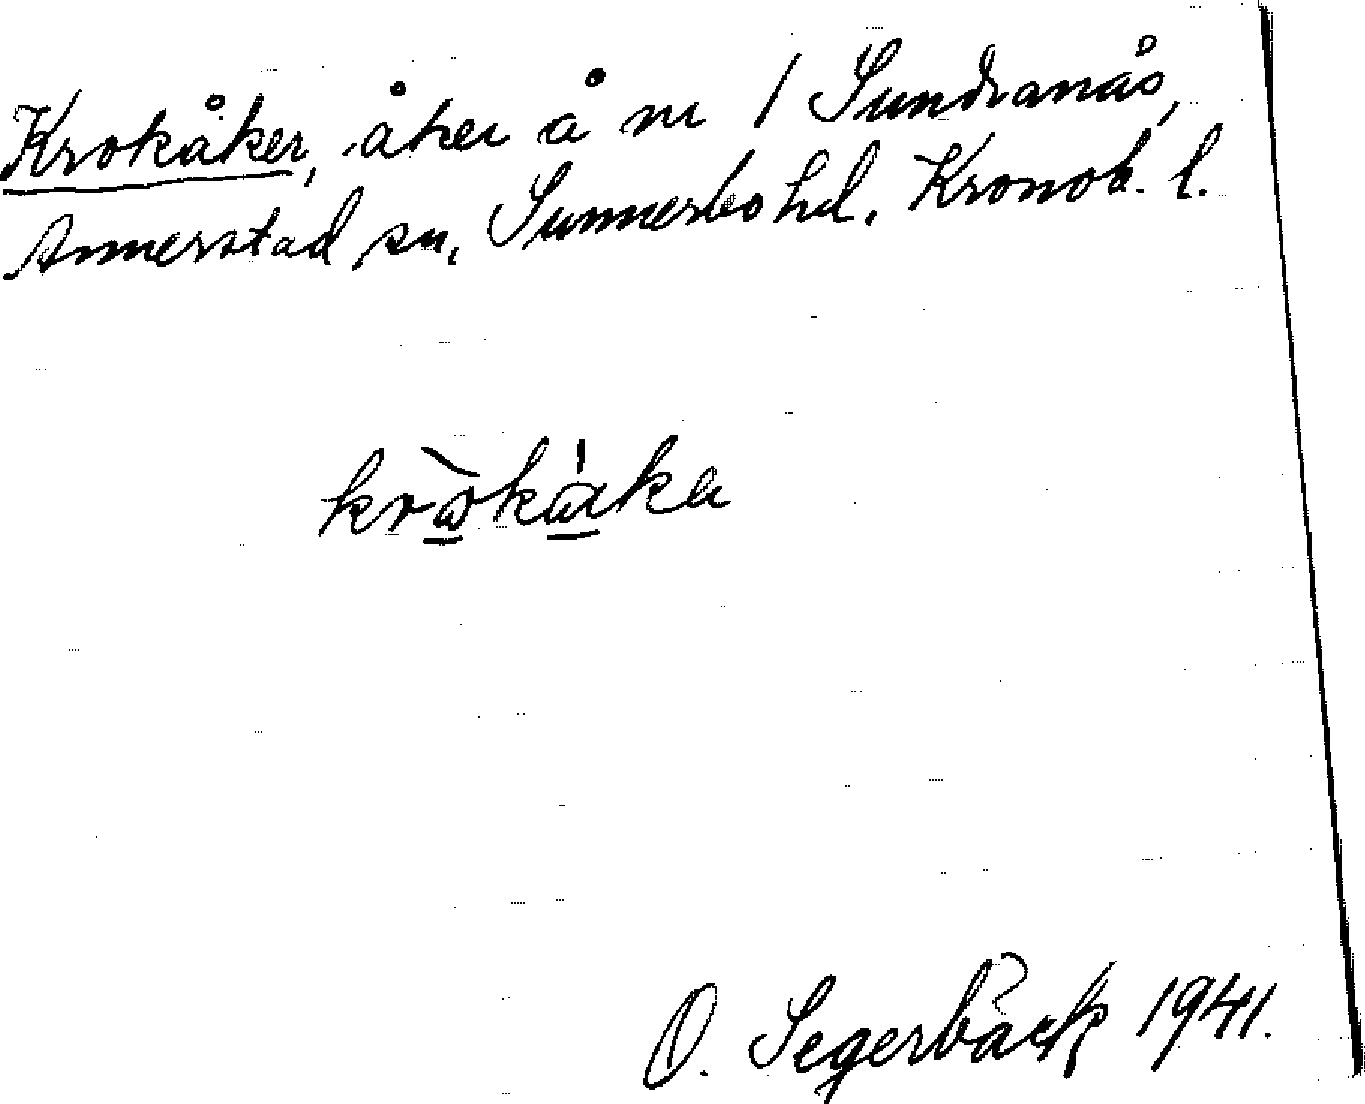 Krokåker, åker å nr 1 Sundranäs,
Annerstad sn, Sunnerbo hd. Kronob. l.
O. Segerbäck 1941.